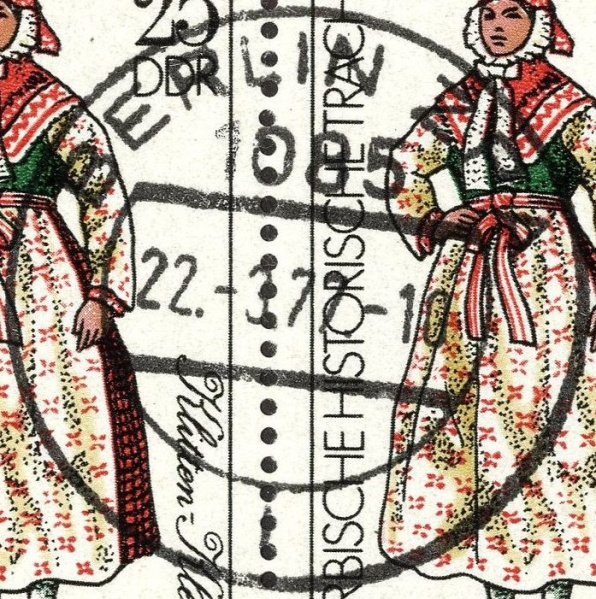 25
DDR
BERLIN
1085
22.-3.77-10
Klitten-
RBISCHE HISTORISCHE TRACH